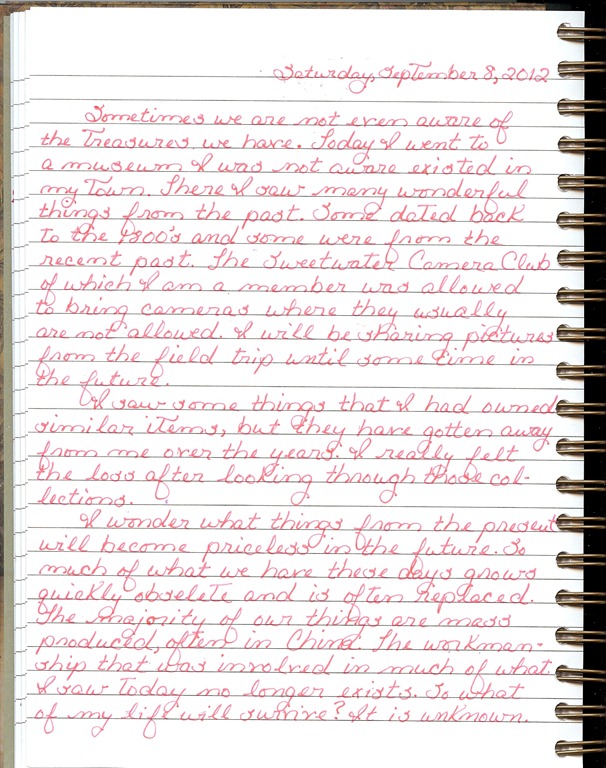 Saturday, September 8, 2012
Sometimes we are not even aware of
the Treasures we have. Today I went to
a museum I was not aware existed in
my Town. There I saw many wonderful
things from the past. Some dated back
to the 1800's and some were from the
recent past. The Sweetwater Camera Club
of which I am a member was allowed
to bring cameras where they usually
are not allowed. I will be sharing pictures
from the field trip until some time in
the future.
I saw some things that I had owned
similar items, but they have gotten away
from me over the years. I really felt
the loss after looking through those col-
lections.
I wonder what things from the present
will become priceless in the future. So
much of what we have these days grows
quickly obselete and is often replaced.
The majority of our things are mass
produced, often in China. The workman-
ship that was involved in much of what
I saw Today no longer exists. So what
of my life will survive? It is unknown.